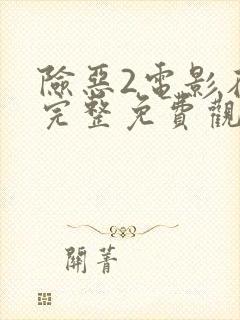 險惡2電影在
完整免費觀
開菁